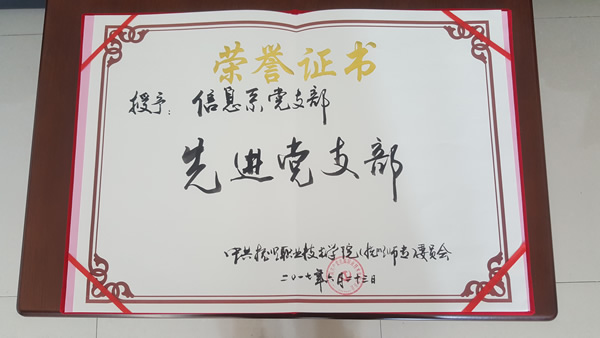 荣誉证书
授予：信息系党支部
先进党支部
中共抚州职业技术学院(抚州师专)委员会
二〇一七年六月二十三日